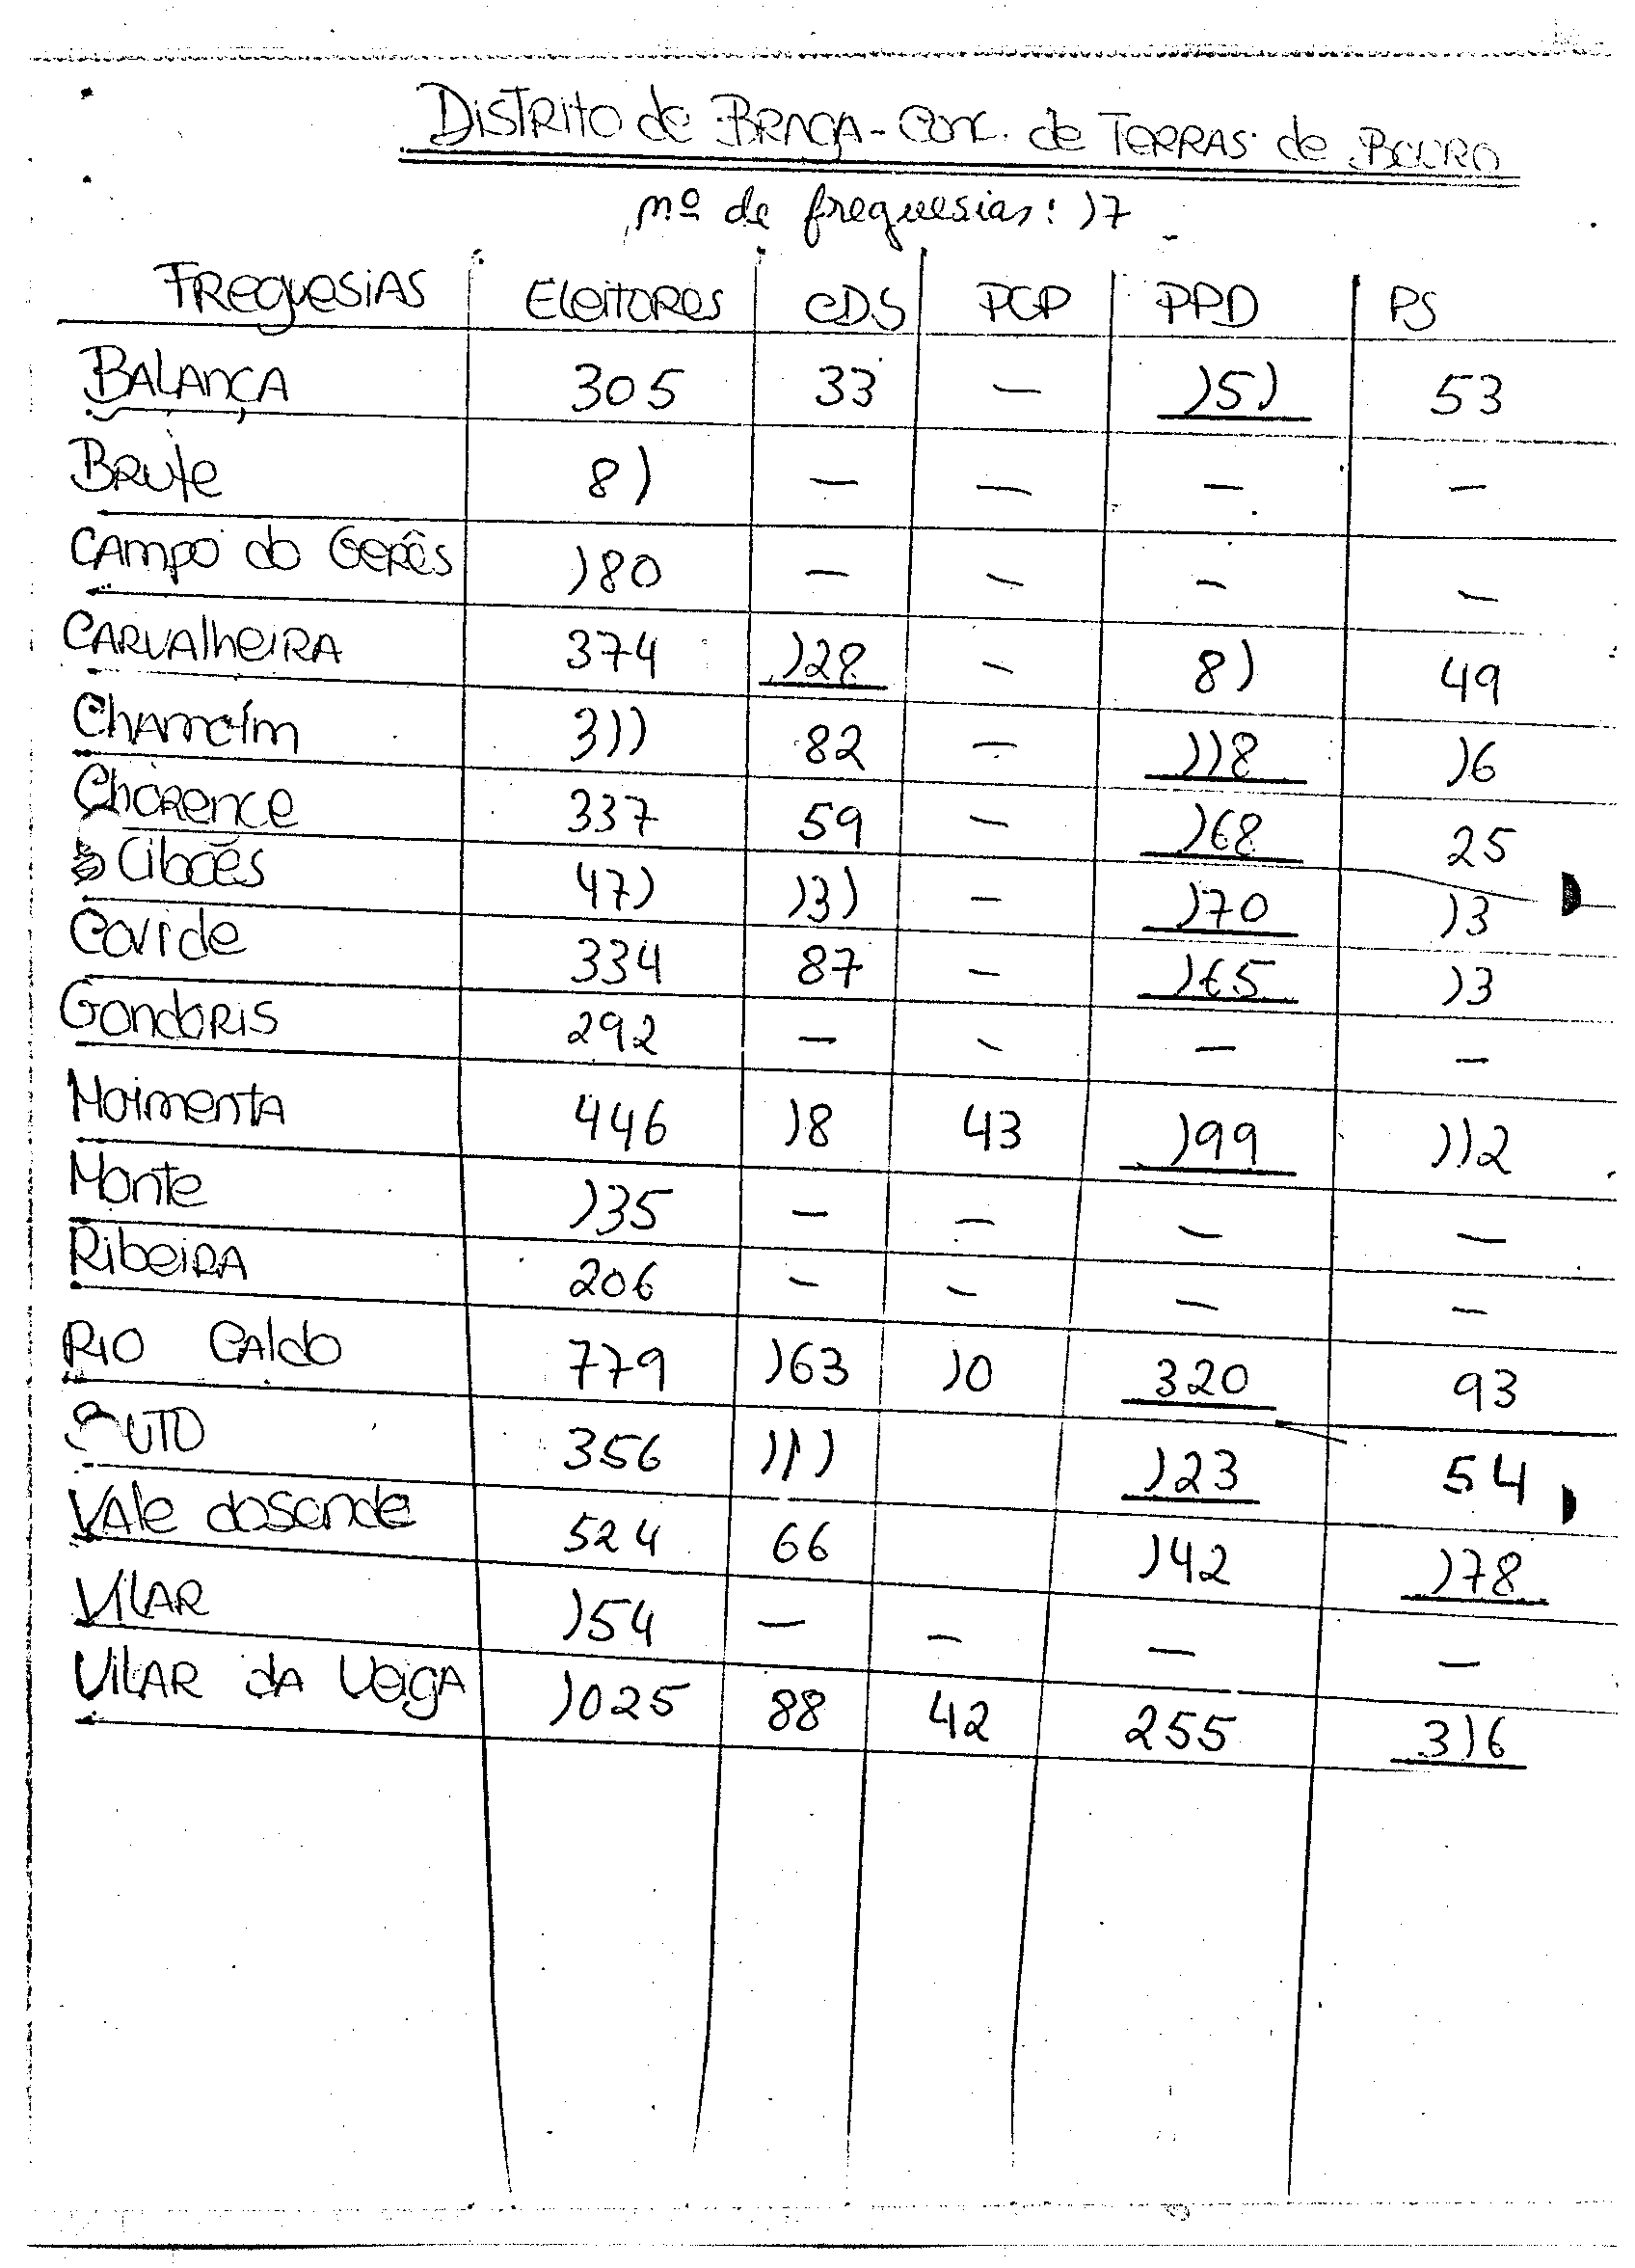 Distrito de Braga - Conc. de Terras de Bouro
nº de freguesias: 17
Freguesias Eleitores CDS PCP PPD PS
Balança 305 33 — 151 53
Brufe 81 — — — —
Campo do Gerês 180 — — — —
Carvalheira 374 128 — 81 49
Chamcím 311 82 — 118 16
Chorence 337 59 — 168 25
Cibões 471 131 — 170 13
Covide 334 87 — 165 13
Gondoris 292 — — — —
Moimenta 446 18 43 199 112
Monte 135 — — — —
Ribeira 206 — — — —
Rio Caldo 779 163 10 320 93
Souto 356 111 123 54
Vale dosende 524 66 142 178
Vilar 154 — — — —
Vilar da Veiga 1025 88 42 255 316